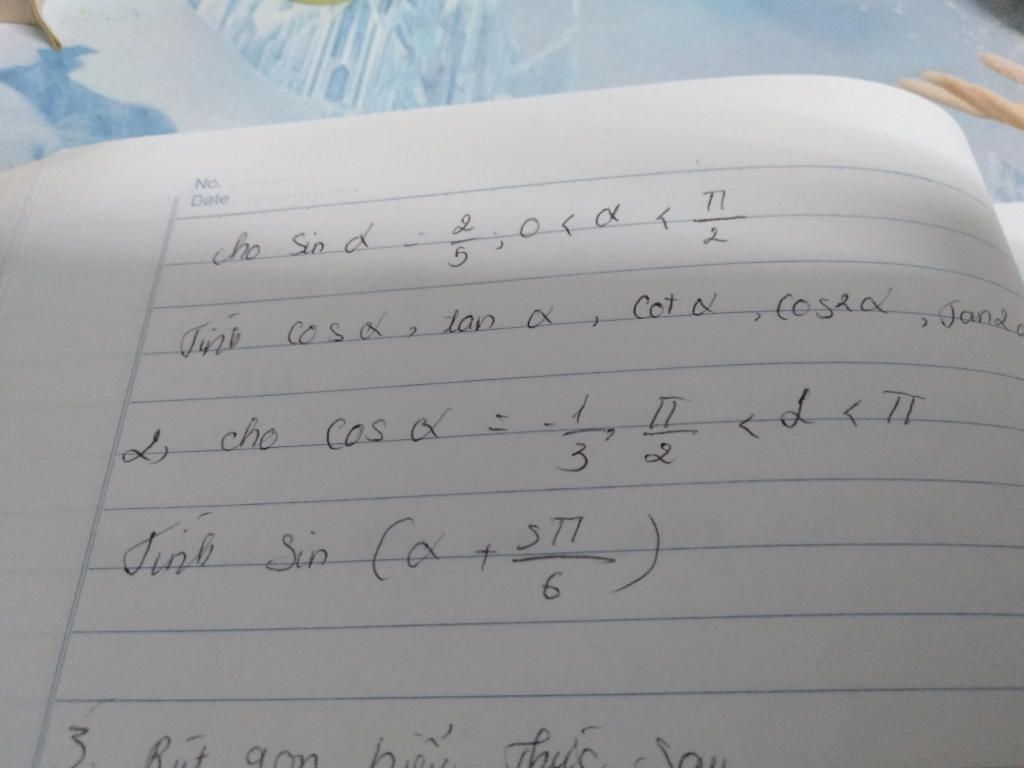 No.
Date
cho sin α = 2/5; 0 < α < π/2
Tính cos α, tan α, cot α, cos2α, Tan2α
2, cho cos α = -1/3, π/2 < α < π
Tính sin (α + 5π/6)
3. Rút gọn biểu thức sau